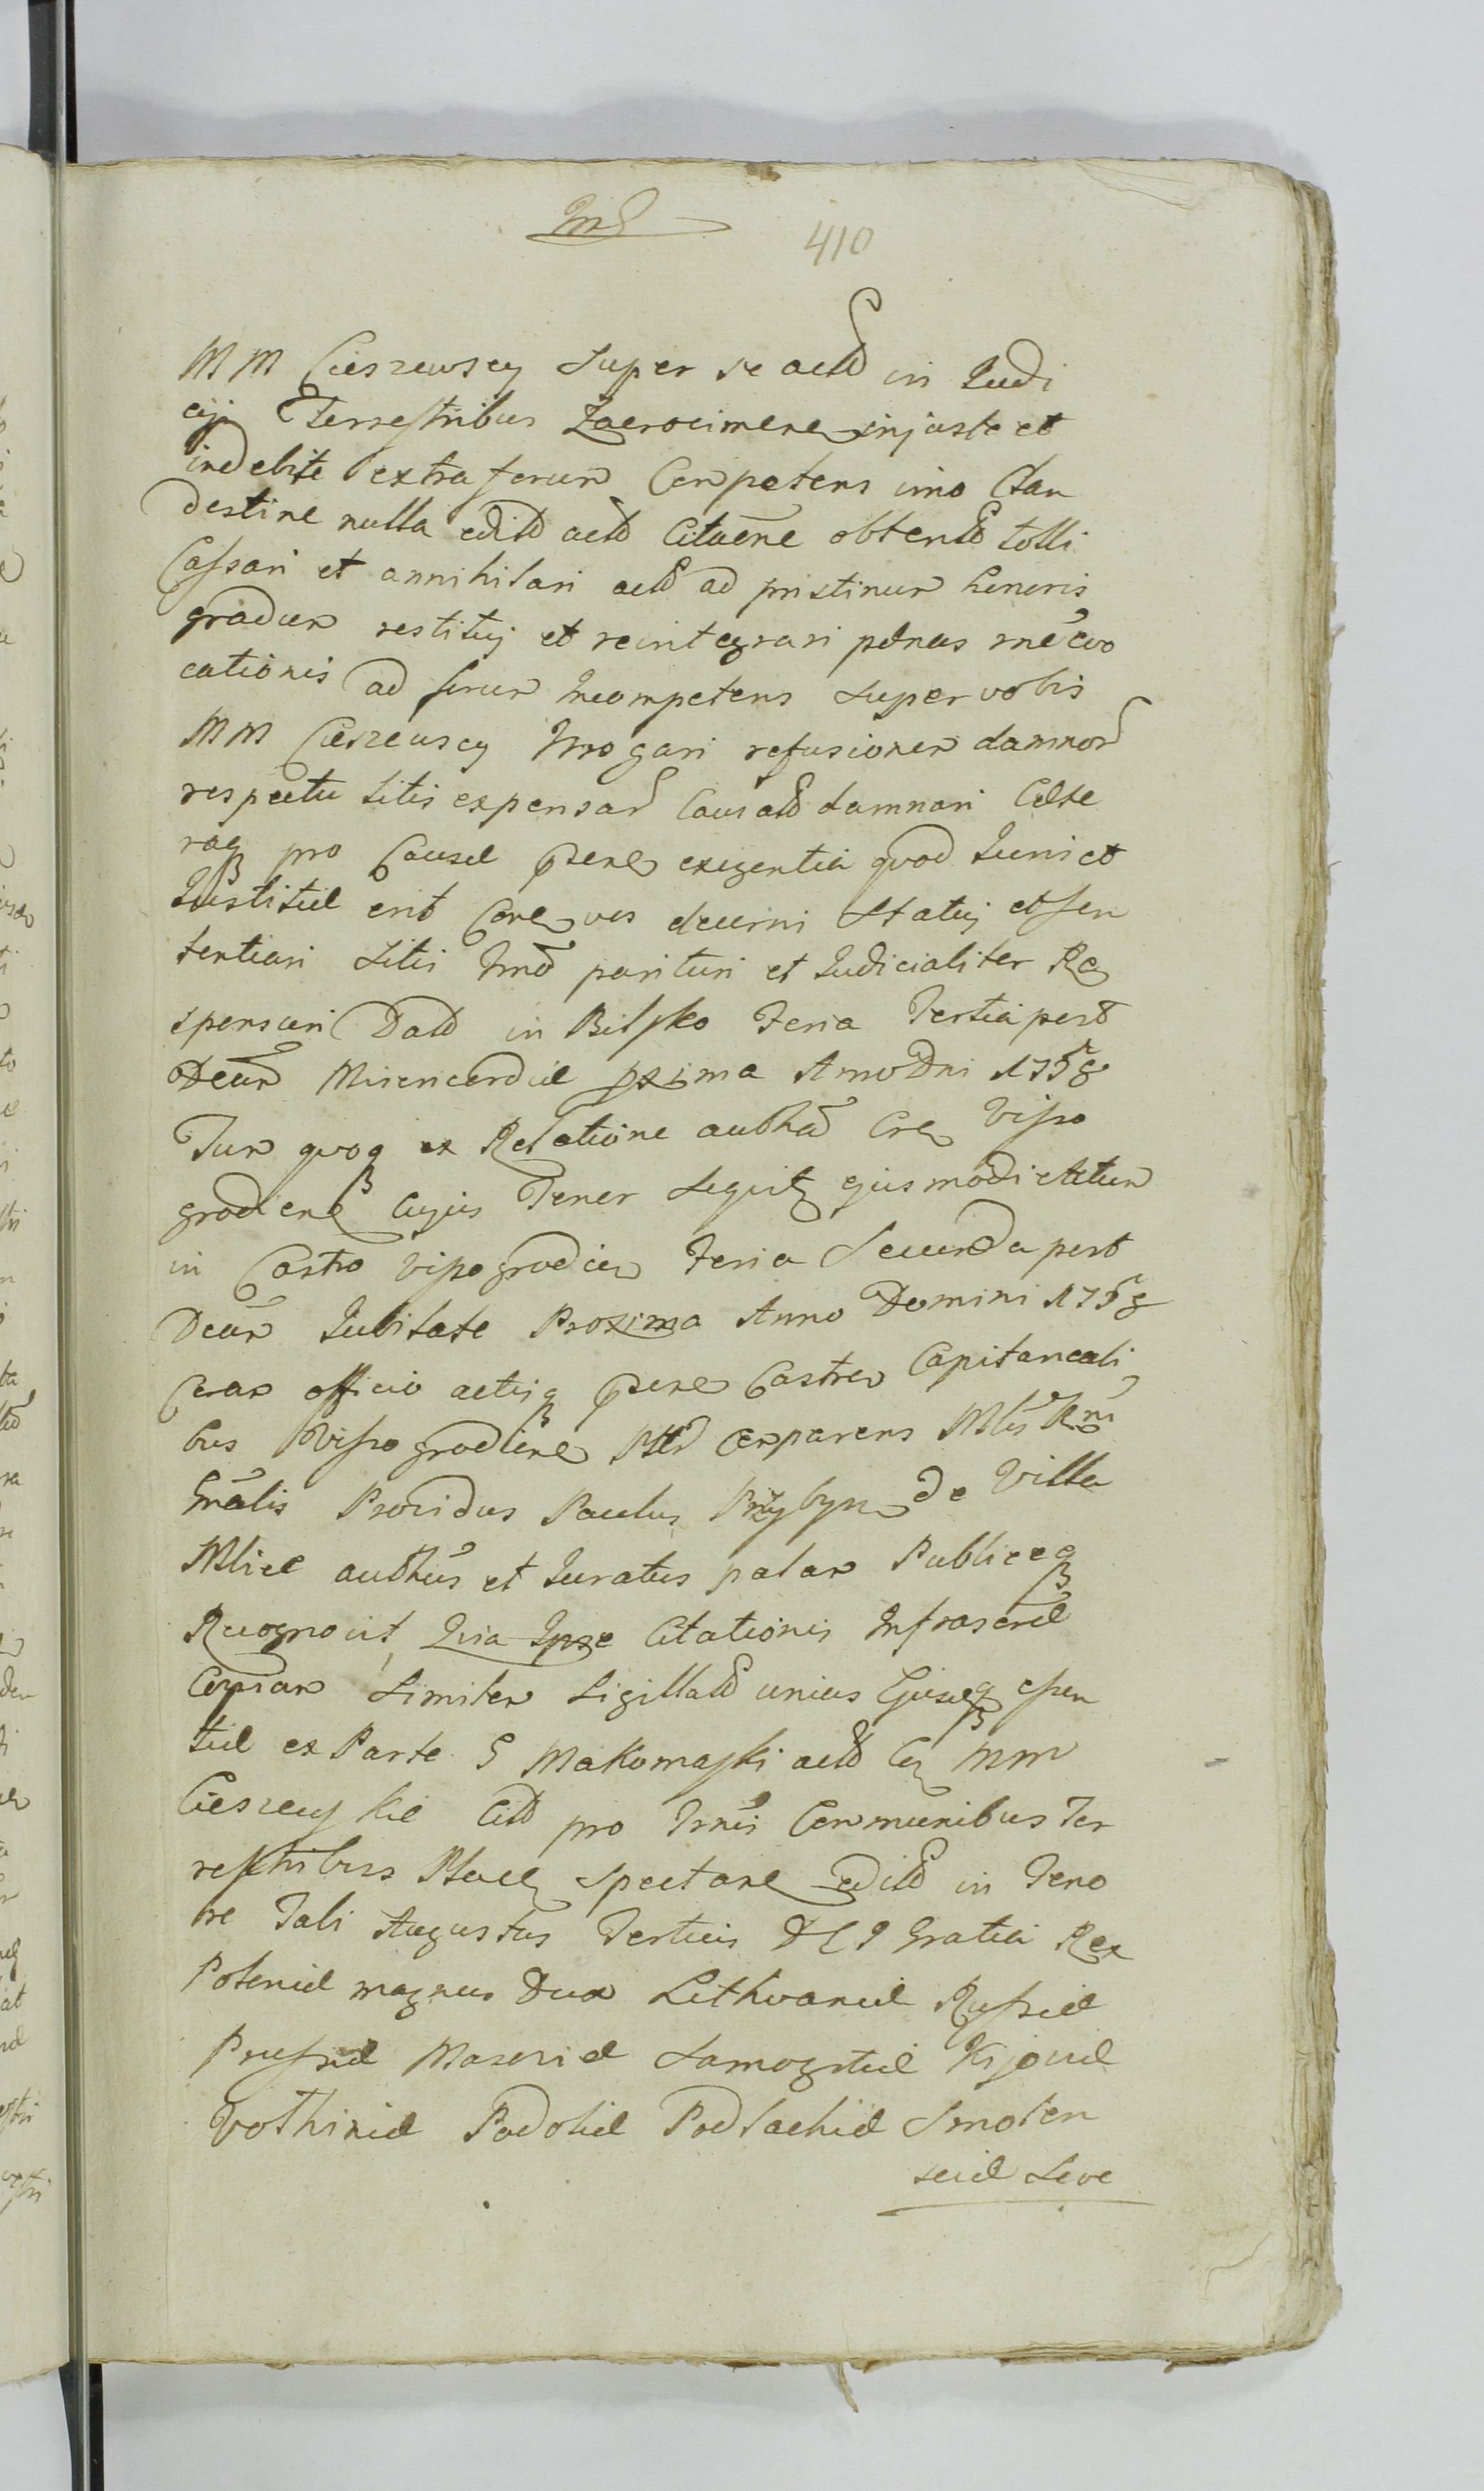 410
MM Cieszewscy super se actt in Judi
cijs Terrestribus Zacrocimen injuste et
indebite extra forum Competens imo clan
destine nulla editt actt Citaone obtentt tolli
Cassari et annihilari actt ad pristinum honoris
gradum restitui et reintegrari penas
cationis ad forum Incompetens super vobis
MM Cieszewscy Irrogari refusionem damnor
respectu litis expensar Causatt damnari Cete
raq pro Causae pnte exigentia quod Juris et
Justitiae erit Coram vos decerni Statuj et sen
tentiari Litis parituri et Judicialiter Re
sponsuri Datt in Bilsko Feria Tertia post
Dcam Misericordiae pxima Anno Dni 1758
Tum quoq ex Relatione authen Visso
groden Cujus Tenor Sequitur ejusmodi Actum
in Castro Vissogrodien Feria Secunda post
Dcam Jubilate Proxima Anno Domini 1758
Coram officio actisq pnt Castren Capitaneali
bus Vissogrodien Comparens Mlis Rni
Gnalis Providus Paulus Przybysz de Villa
authus et Juratus palam Publiceq
Recognovit Quia Ipse Citationis Infrascrae
Copiam similem Sigillatt unius Ejusdemq essen
tiae ex Parte G Makomaski actt Cont MM
Cieszewskie Citt pro Trnis Communibus Ter
restribus Plocen Spectan editt in Teno
re Tali Augustus Tertius D G Gratia Rex
Poloniae magnus Dux Lithvaniae Russiae
Prussiae Masoviae Samogitiae Kijoviae
Volhiniae Podoliae Podlachiae Smolen
sciae Seve